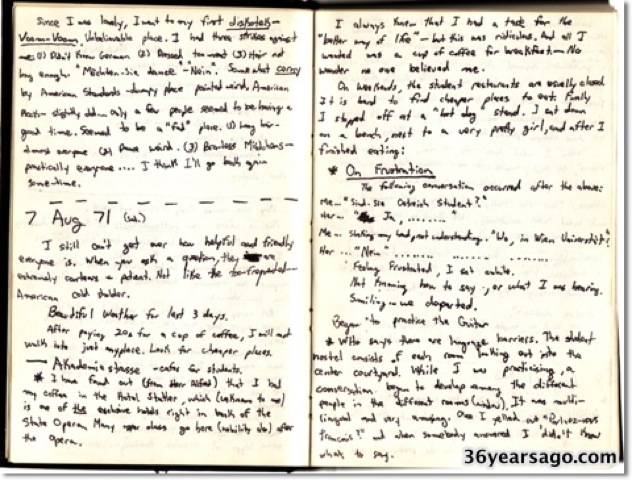 Since I was lonely, I went to my first diskotek-
Voom-Voom. Unbelievable place. I had three strikes against
me: (1) Don't know German (2) Dressed too neat (3) Hair not
long enough. "Möchten-Sie dance" - "Nein". Somewhat corny
by American Standards - dumpy place painted weird, American
Music - slightly old... only a few people seemed to be having a
good time. Seemed to be a "fad" place. (1) Long hair-
almost everyone (2) Dance weird. (3) Braless Mädchens-
practically everyone.... I think I'll go back again
some-time.
7 Aug 71 (sa.)
I still can't get over how helpful and friendly
everyone is. When you ask a question, they are
extremely courteous & patient. Not like the too-frequented-
American cold shoulder.
Beautiful Weather for last 3 days.
After paying 20s for a cup of coffee, I will not
walk into just anyplace. Look for cheaper places.
— Akademiestrasse - cafes for students.
* I have found out (from Herr Alfred) that I had
my coffee in the Hotel Stalher, which (unknown to me)
is one of the exclusive hotels right in back of the
State Opera. Many upper class go here (nobility also) after
the Opera.
I always knew that I had a taste for the
"better way of life" - but this was ridiculous. And all I
wanted was a cup of coffee for breakfast - No
wonder no one believed me.
On weekends, the student restaurants are usually closed.
It is hard to find cheaper places to eat. Finally
I stopped off at a "hot dog" stand. I sat down
on a bench, next to a very pretty girl, and after I
finished eating:
* On Frustration
The following conversation occurred after the above:
Me... "Sind-Sie Ostreich Student?"
Her... "Ja, ........"
Me... Shaking my head, not understanding. "Wo, in Wien Universität?"
Her... "Nein" ...... ...... ......
Feeling Frustrated, I sat awhile.
Not knowing how to say, or what I was hearing.
Smiling - we departed.
Began to practice the Guitar
* Who says there are language barriers. The student
hostel consists of each room looking out into the
center courtyard. While I was practising, a
conversation began to develop among the different
people in the different rooms (windows). It was multi-
lingual and very amusing. Once I yelled out "Parlez-vous
francais?" and when somebody answered I didn't know
what to say.
36yearsago.com